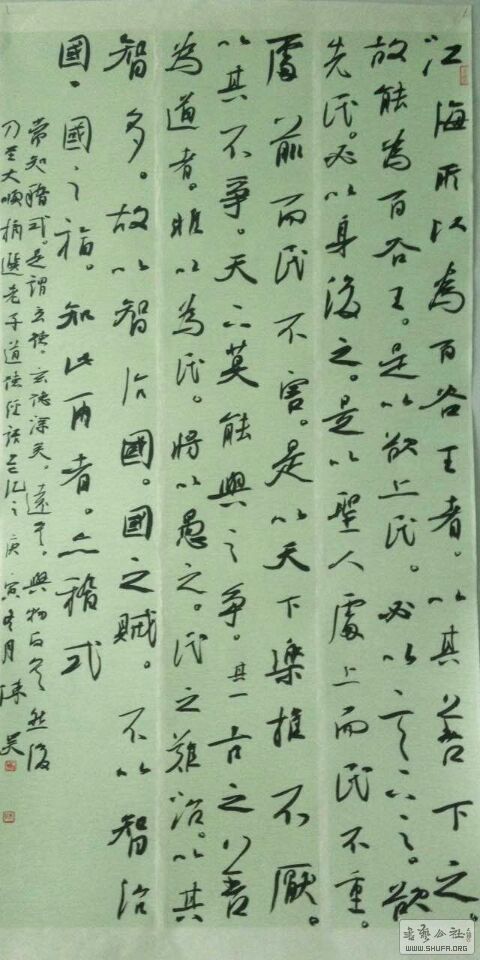 江海所以為百谷王者。以其善下之。
故能為百谷王。是以欲上民。必以言下之。欲
先民。必以身後之。是以聖人處上而民不重。
處前而民不害。是以天下樂推不厭。
以其不爭。天下莫能與之爭。其一古之善
為道者。非以為民。將以愚之。民之難治。以其
智多。故以智治國。國之賊。不以智治
國、國之福。知此兩者。亦稽式
常知稽式。是謂玄德、玄德深矣。遠乎。與物反矣然後
乃至大順摘選老子道德經語 庚寅冬月 陳
WWW.SHUFA.ORG